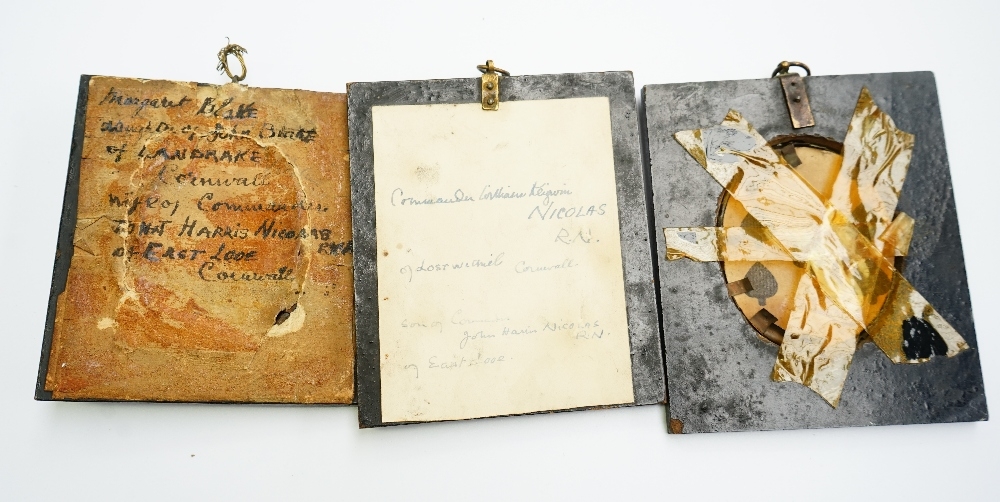 Margaret Blake
daughter of John Blake
of LANDRAKE
Cornwall
wife of Commander
JOHN HARRIS NICOLAS
of EAST LOOE
Cornwall
Commander William Keigwin
NICOLAS
R.N.
of Lostwithiel Cornwall.
son of Comman
John Harris NICOLAS
R.N.
of East Looe.